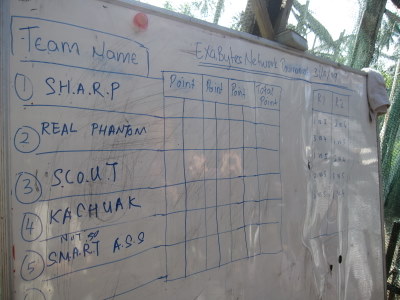 Team Name
Exabytes Network
Point Point Point Total Point
1 S.H.A.R.P
2 REAL PHANTOM
3 S.C.O.U.T
4 KACHUAK
NOT SO
5 SMART A.S.S